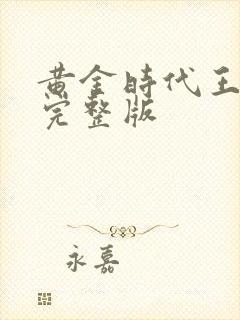 黄金時代王
完整版
永嘉